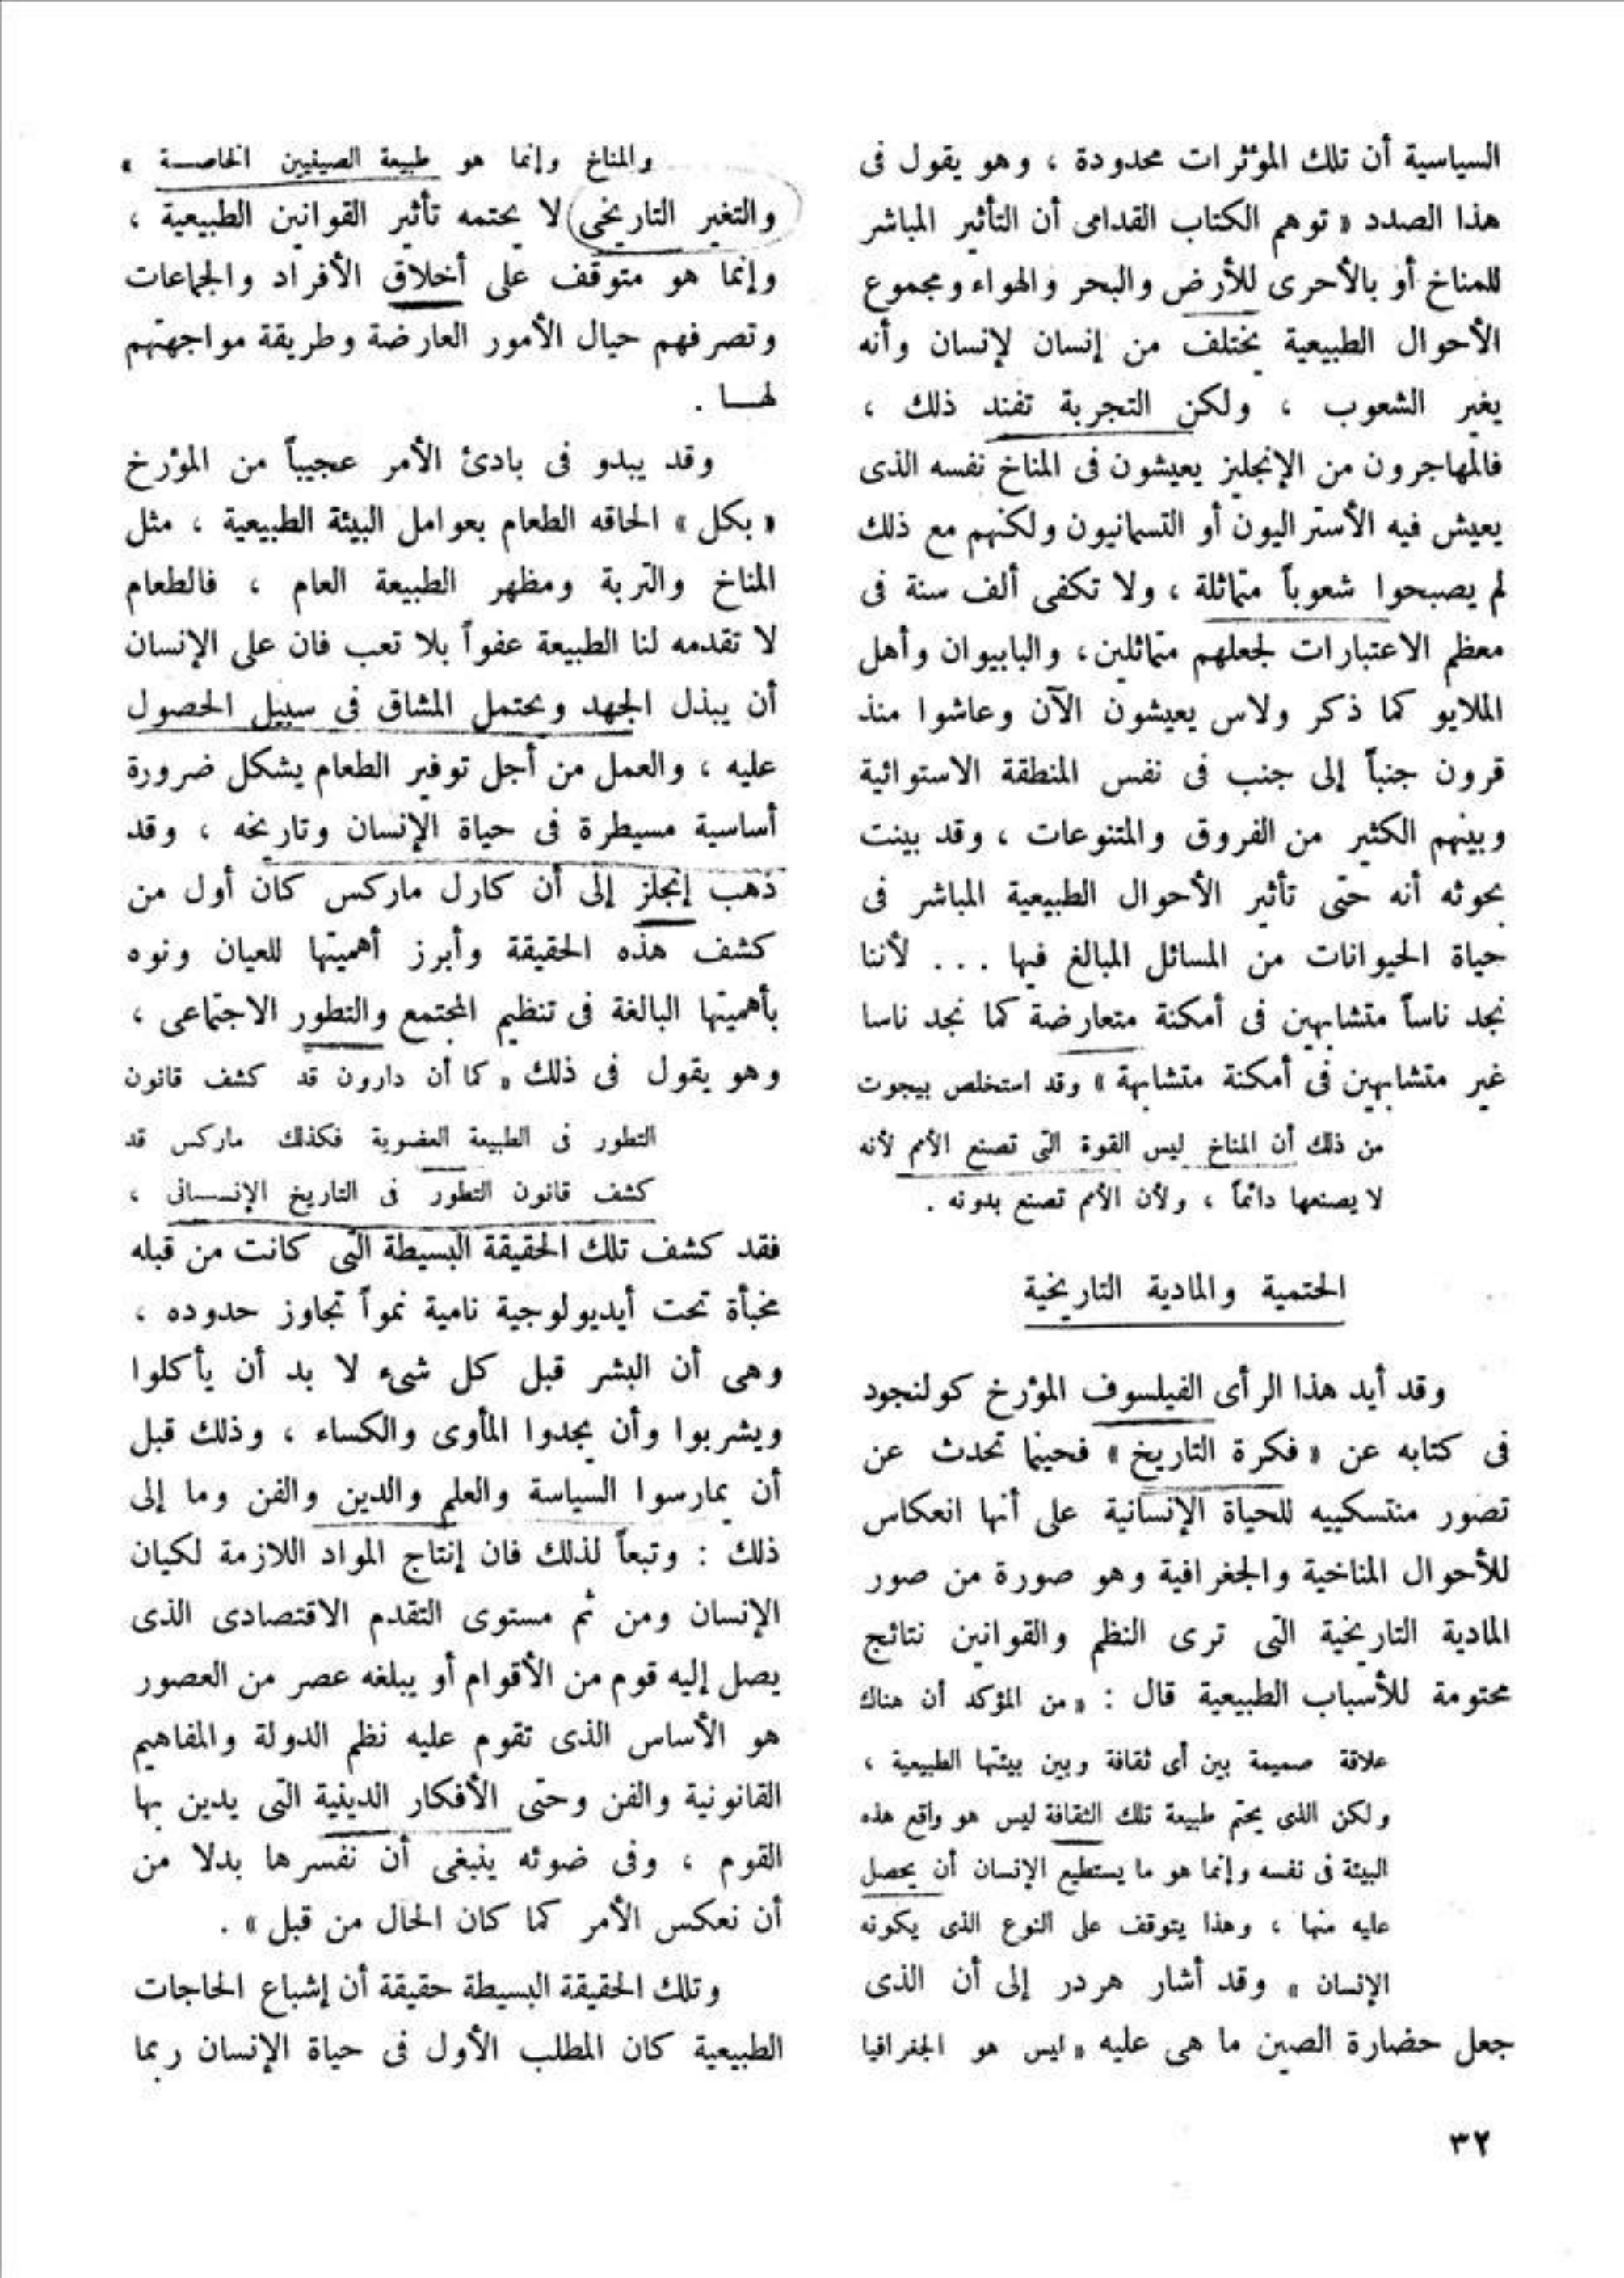 السياسية أن تلك المؤثرات محدودة ، وهو يقول فى
هذا الصدد « توهم الكتاب القدامى أن التأثير المباشر
للمناخ أو بالأحرى للأرض والبحر والهواء ومجموع
الأحوال الطبيعية يختلف من إنسان لإنسان وأنه
يغير الشعوب ، ولكن التجربة تفند ذلك ،
فالمهاجرون من الإنجليز يعيشون فى المناخ نفسه الذى
يعيش فيه الأستراليون أو التسمانيون ولكنهم مع ذلك
لم يصبحوا شعوباً متماثلة ، ولا تكفى ألف سنة فى
معظم الاعتبارات لجعلهم متماثلين ، والبابيوان وأهل
الملايو كما ذكر ولاس يعيشون الآن وعاشوا منذ
قرون جنباً إلى جنب فى نفس المنطقة الاستوائية
وبينهم الكثير من الفروق والمتنوعات ، وقد بينت
بحوثه أنه حتى تأثير الأحوال الطبيعية المباشر فى
حياة الحيوانات من المسائل المبالغ فيها ... لأننا
نجد ناساً متشابهين فى أمكنة متعارضة كما نجد ناسا
غير متشابهين فى أمكنة متشابهة » وقد استخلص بيجوت
من ذلك أن المناخ ليس القوة التى تصنع الأمم لأنه
لا يصنعها دائماً ، ولأن الأمم تصنع بدونه .
الحتمية والمادية التاريخية
وقد أيد هذا الرأى الفيلسوف المؤرخ كولنجود
فى كتابه عن « فكرة التاريخ » فحينما تحدث عن
تصور منتسكييه للحياة الإنسانية على أنها انعكاس
للأحوال المناخية والجغرافية وهو صورة من صور
المادية التاريخية التى ترى النظم والقوانين نتائج
محتومة للأسباب الطبيعية قال : « من المؤكد أن هناك
علاقة صميمة بين أى ثقافة وبين بيئتها الطبيعية ،
ولكن الذى يحتم طبيعة تلك الثقافة ليس هو واقع هذه
البيئة فى نفسه وإنما هو ما يستطيع الإنسان أن يحصل
عليه منها ، وهذا يتوقف على النوع الذى يكونه
الإنسان » وقد أشار هردر إلى أن الذى
جعل حضارة الصين ما هى عليه « ليس هو الجغرافيا
والمناخ وإنما هو طبيعة الصينيين الخاصة »
والتغير التاريخى لا يحتمه تأثير القوانين الطبيعية ،
وإنما هو متوقف على أخلاق الأفراد والجماعات
وتصرفهم حيال الأمور العارضة وطريقة مواجهتهم
لها .
وقد يبدو فى بادئ الأمر عجيباً من المؤرخ
« بكل » الحاقه الطعام بعوامل البيئة الطبيعية ، مثل
المناخ والتربة ومظهر الطبيعة العام ، فالطعام
لا تقدمه لنا الطبيعة عفواً بلا تعب فان على الإنسان
أن يبذل الجهد ويحتمل المشاق فى سبيل الحصول
عليه ، والعمل من أجل توفير الطعام يشكل ضرورة
أساسية مسيطرة فى حياة الإنسان وتاريخه ، وقد
ذهب إنجلز إلى أن كارل ماركس كان أول من
كشف هذه الحقيقة وأبرز أهميتها للعيان ونوه
بأهميتها البالغة فى تنظيم المجتمع والتطور الاجتماعى ،
وهو يقول فى ذلك « كما أن دارون قد كشف قانون
التطور فى الطبيعة العضوية فكذلك ماركس قد
كشف قانون التطور فى التاريخ الإنسانى ،
فقد كشف تلك الحقيقة البسيطة التى كانت من قبله
مخبأة تحت أيديولوجية نامية نمواً تجاوز حدوده ،
وهى أن البشر قبل كل شىء لا بد أن يأكلوا
ويشربوا وأن يجدوا المأوى والكساء ، وذلك قبل
أن يمارسوا السياسة والعلم والدين والفن وما إلى
ذلك : وتبعاً لذلك فان إنتاج المواد اللازمة لكيان
الإنسان ومن ثم مستوى التقدم الاقتصادى الذى
يصل إليه قوم من الأقوام أو يبلغه عصر من العصور
هو الأساس الذى تقوم عليه نظم الدولة والمفاهيم
القانونية والفن وحتى الأفكار الدينية التى يدين بها
القوم ، وفى ضوئه ينبغى أن نفسرها بدلا من
أن نعكس الأمر كما كان الحال من قبل » .
وتلك الحقيقة البسيطة حقيقة أن إشباع الحاجات
الطبيعية كان المطلب الأول فى حياة الإنسان ربما
٣٢